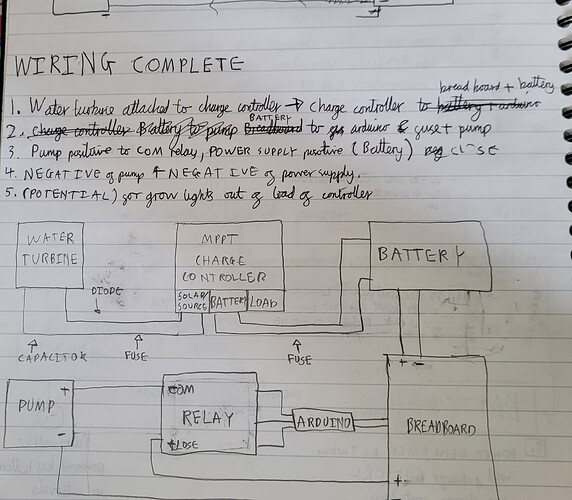 WIRING COMPLETE
bread board + battery
1. Water turbine attached to charge controller → charge controller to battery + arduino
BATTERY
2. charge controller Battery to pump Breadboard to arduino & fuse + pump
3. Pump positive to COM relay, POWER SUPPLY positive (Battery) CLOSE
4. NEGATIVE of pump + NEGATIVE of power supply.
5. (POTENTIAL) for grow lights out of load of controller
WATER TURBINE
MPPT CHARGE CONTROLLER
BATTERY
DIODE
SOLAR/ SOURCE BATTERY LOAD
CAPACITOR FUSE FUSE
+ -
PUMP + -
COM RELAY CLOSE
ARDUINO
BREADBOARD
+ -